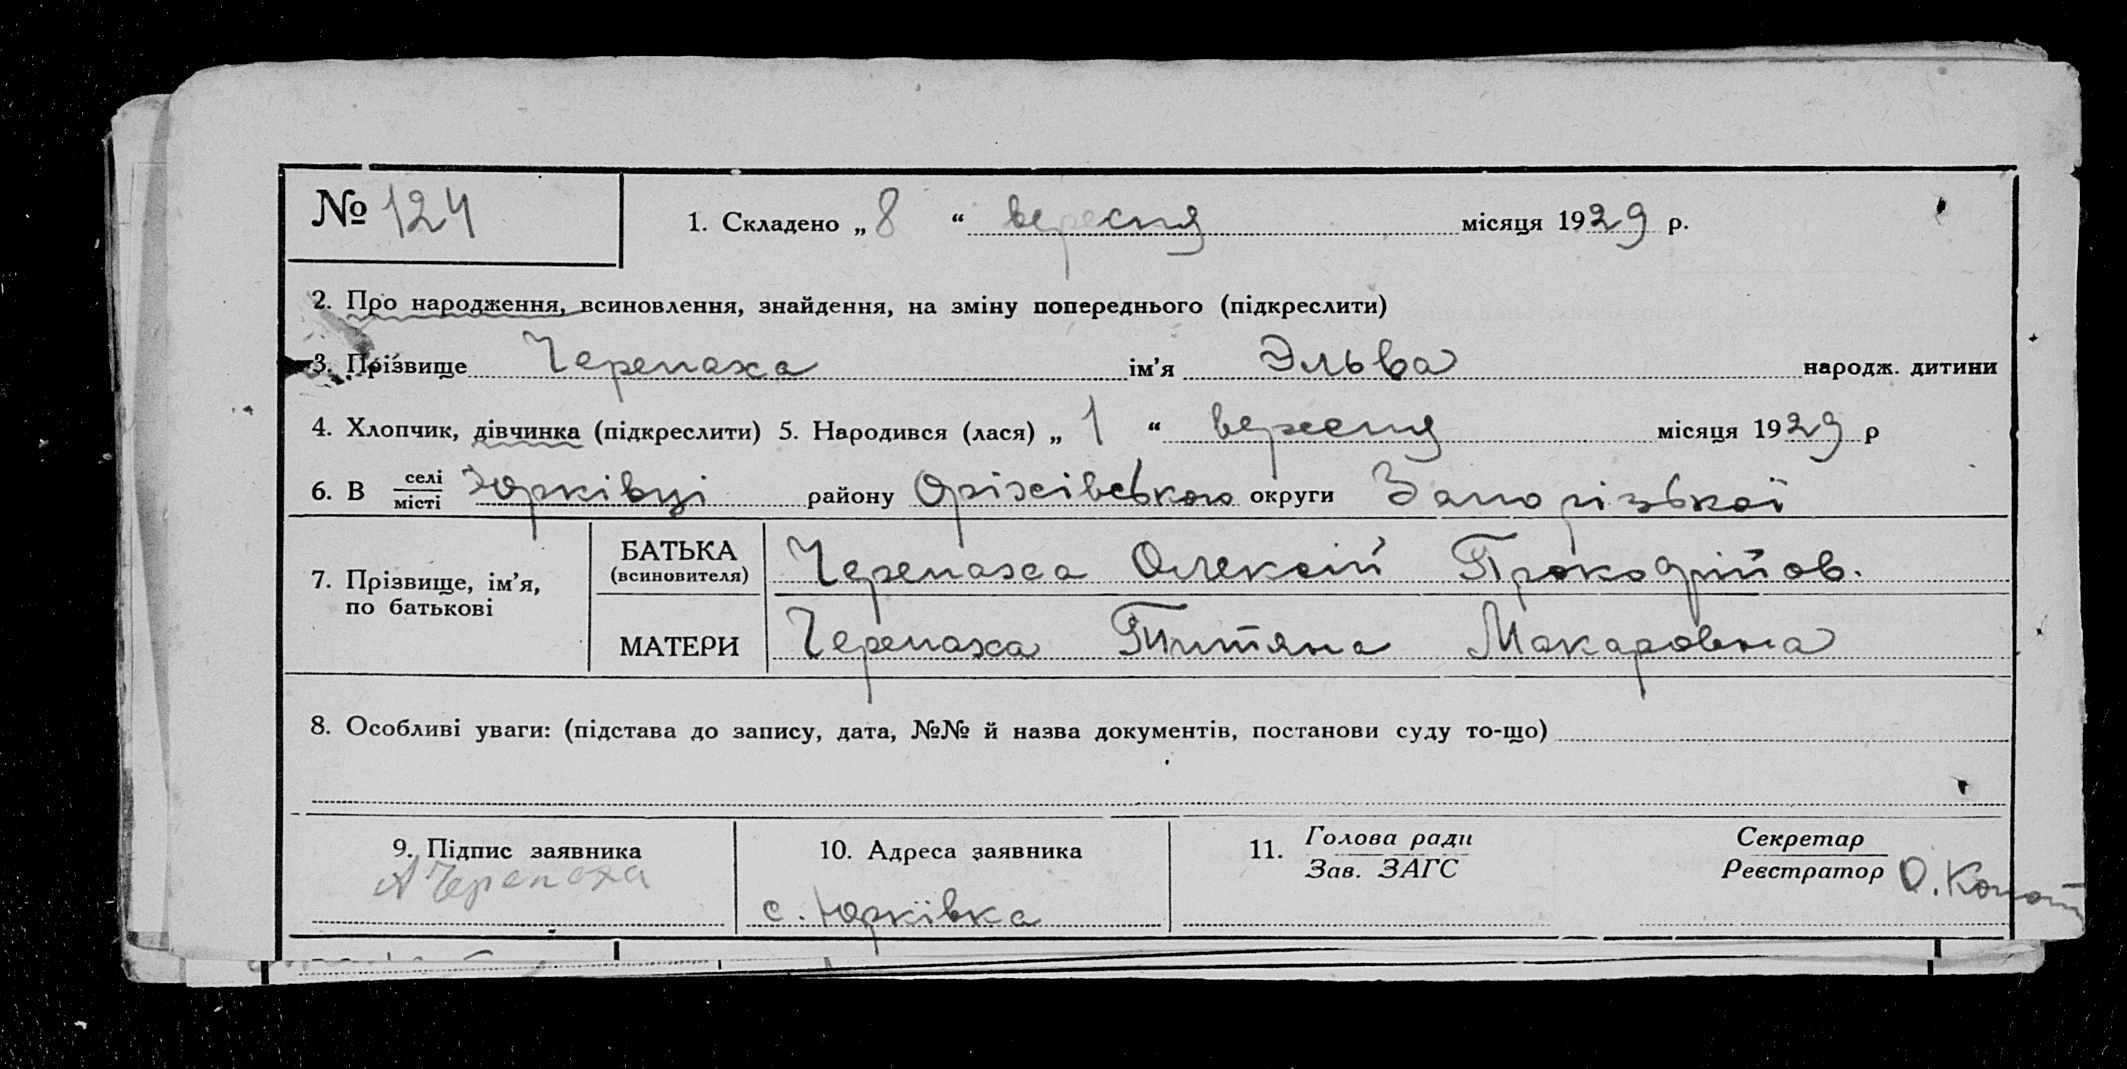 № 124
1. Складено „ 8 “ вересня місяця 1929 р.
2. Про народження, всиновлення, знайдення, на зміну попереднього (підкреслити)
3. Прізвище Черепаха ім’я Эльва народж. дитини
4. Хлопчик, дівчинка (підкреслити) 5. Народився (лася) „ 1 “ вересня місяця 1929 р
6. В селі місті Юрківці району Оріхівського округи Запорізької
7. Прізвище, ім’я, по батькові
БАТЬКА (всиновителя) Черепаха Олексій Прокофійов.
МАТЕРИ Черепаха Титяна Макаровна
8. Особливі уваги: (підстава до запису, дата, №№ й назва документів, постанови суду то-що)
9. Підпис заявника
А Черепаха
10. Адреса заявника
с. Юрківка
11. Голова ради
Зав. ЗАГС
Секретар
Реєстратор О.